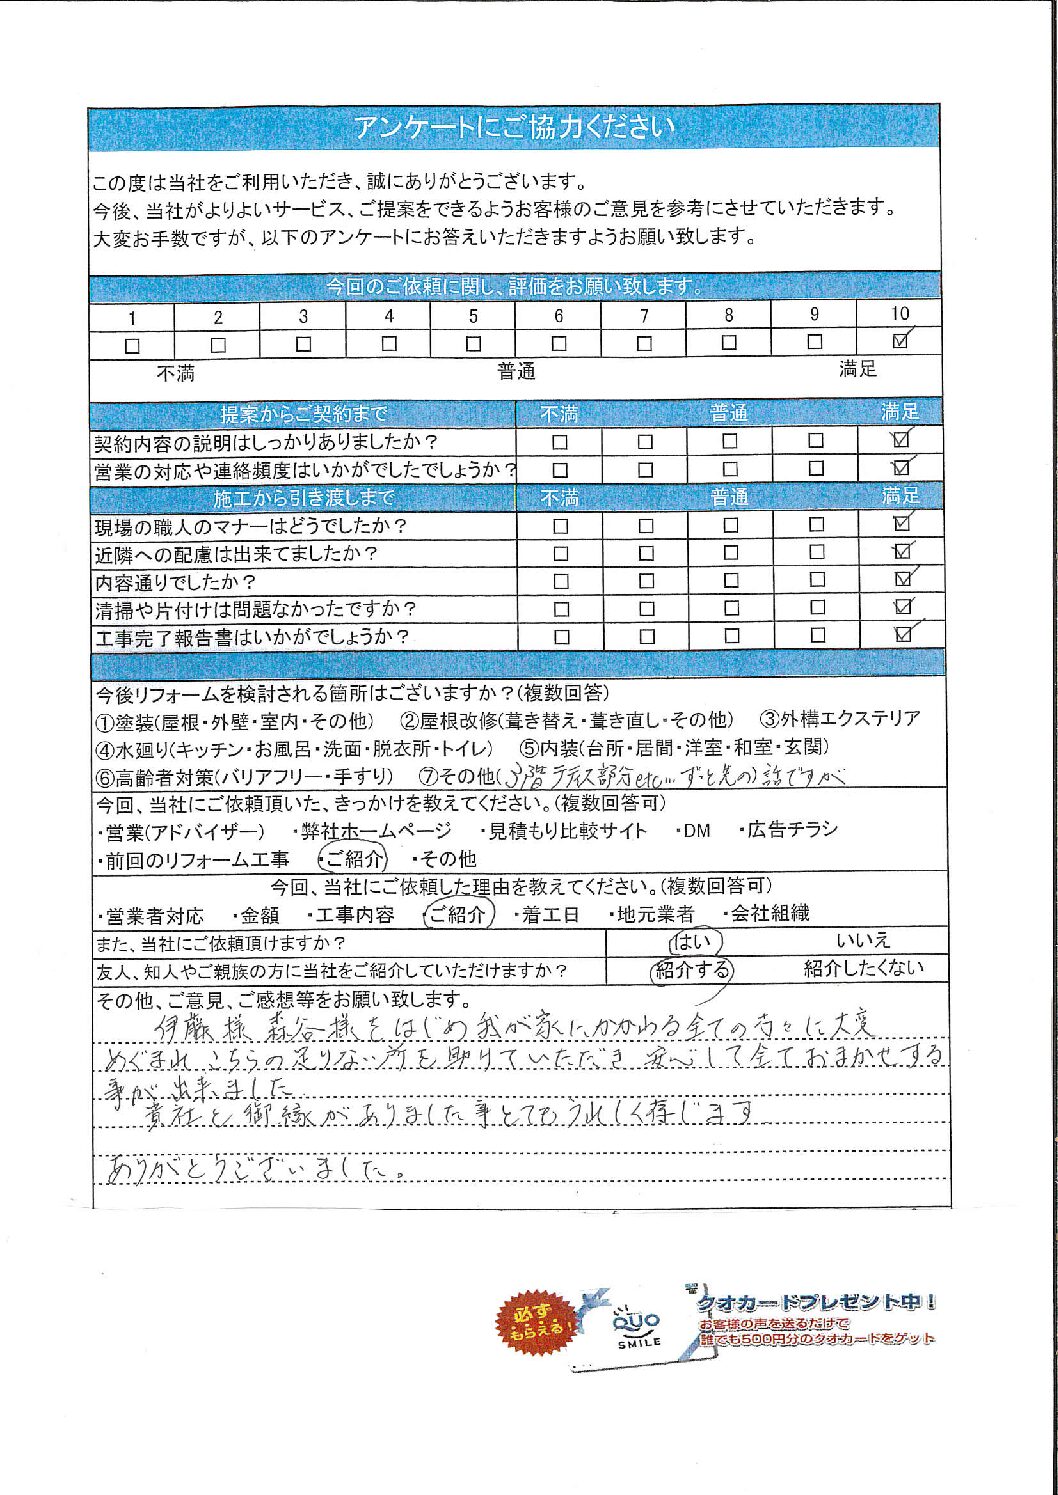 アンケートにご協力ください
この度は当社をご利用いただき、誠にありがとうございます。
今後、当社がよりよいサービス、ご提案をできるようお客様のご意見を参考にさせていただきます。
大変お手数ですが、以下のアンケートにお答えいただきますようお願い致します。
今回のご依頼に関し、評価をお願い致します。
1 2 3 4 5 6 7 8 9 10
□ □ □ □ □ □ □ □ □ ☑
不満 普通 満足
提案からご契約まで 不満 普通 満足
契約内容の説明はしっかりありましたか？ □ □ □ □ ☑
営業の対応や連絡頻度はいかがでしたでしょうか？ □ □ □ □ ☑
施工から引き渡しまで 不満 普通 満足
現場の職人のマナーはどうでしたか？ □ □ □ □ ☑
近隣への配慮は出来てましたか？ □ □ □ □ ☑
内容通りでしたか？ □ □ □ □ ☑
清掃や片付けは問題なかったですか？ □ □ □ □ ☑
工事完了報告書はいかがでしょうか？ □ □ □ □ ☑
今後リフォームを検討される箇所はございますか？(複数回答)
①塗装(屋根・外壁・室内・その他) ②屋根改修(葺き替え・葺き直し・その他) ③外構エクステリア
④水廻り(キッチン・お風呂・洗面・脱衣所・トイレ) ⑤内装(台所・居間・洋室・和室・玄関)
⑥高齢者対策(バリアフリー・手すり) ⑦その他(3階テラス部分etc…ずっと先の)話ですが
今回、当社にご依頼頂いた、きっかけを教えてください。(複数回答可)
・営業(アドバイザー) ・弊社ホームページ ・見積もり比較サイト ・DM ・広告チラシ
・前回のリフォーム工事 ・ご紹介 ・その他
今回、当社にご依頼した理由を教えてください。(複数回答可)
・営業者対応 ・金額 ・工事内容 ・ご紹介 ・着工日 ・地元業者 ・会社組織
また、当社にご依頼頂けますか？ はい いいえ
友人、知人やご親族の方に当社をご紹介していただけますか？ 紹介する 紹介したくない
その他、ご意見、ご感想等をお願い致します。
伊藤様 森谷様をはじめ我が家にかかわる全ての方々に大変
めぐまれ こちらの足りない所を助けていただき 安心して全ておまかせする
事が出来ました
貴社と御縁がありました事とてもうれしく存じます
ありがとうございました。
必ずもらえる！
QUO
SMILE
クオカードプレゼント中！
お客様の声を送るだけで
誰でも500円分のクオカードをゲット